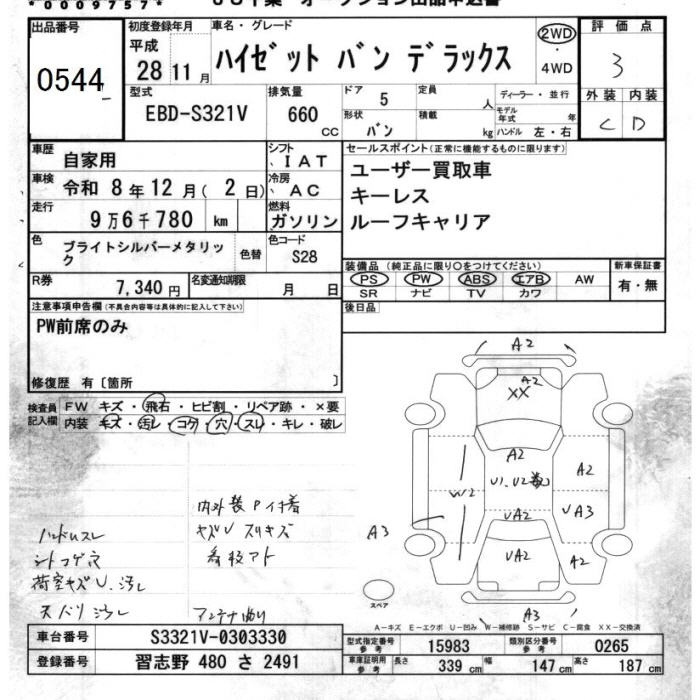 *0009757*
出品番号
0544
初度登録年月
平成
28 11 月
車名・グレード
ハイゼット バン デラックス
2WD
4WD
評価点
3
外装 内装
C D
型式
EBD-S321V
排気量
660 CC
ドア 5
形状 バン
定員 人
積載 kg
ディーラー・並行
モデル年式 年
ハンドル 左・右
車歴 自家用
車検 令和 8年 12月 ( 2日)
走行 9万6千780 km
シフト IAT
冷房 AC
燃料 ガソリン
色 ブライトシルバーメタリック
色替
色コード S28
R券 7,340 円
名変通知期限 月 日
セールスポイント(正常に機能するものに限ります)
ユーザー買取車
キーレス
ルーフキャリア
装備品(純正品に限り○をつけてください)
PS PW ABS エアB AW
SR ナビ TV カワ
新車保証書
有・無
後日品
注意事項申告欄(不具合内容等は具体的に記入して下さい)
PW前席のみ
修復歴 有〔箇所 〕
検査員記入欄
FW キズ・飛石・ヒビ割・リペア跡・×要
内装 キズ・汚レ・コゲ・穴・スレ・キレ・破レ
内外装
キズU スリキズ
ハンドルスレ
シートコゲ穴
荷室キズU、汚レ
アンテナ
A2
A2
XX
A2
A2
W2
UA2
UA3
UA2
A2
A3
A3
スペア
A-キズ E-エクボ U-凹み W-補修跡 S-サビ C-腐食 XX-交換済
車台番号 S3321V-0303330
登録番号 習志野 480 さ 2491
型式指定番号 参考 15983
類別区分番号 参考 0265
車庫証明用 参考 長さ 339 cm 幅 147 cm 高さ 187 cm